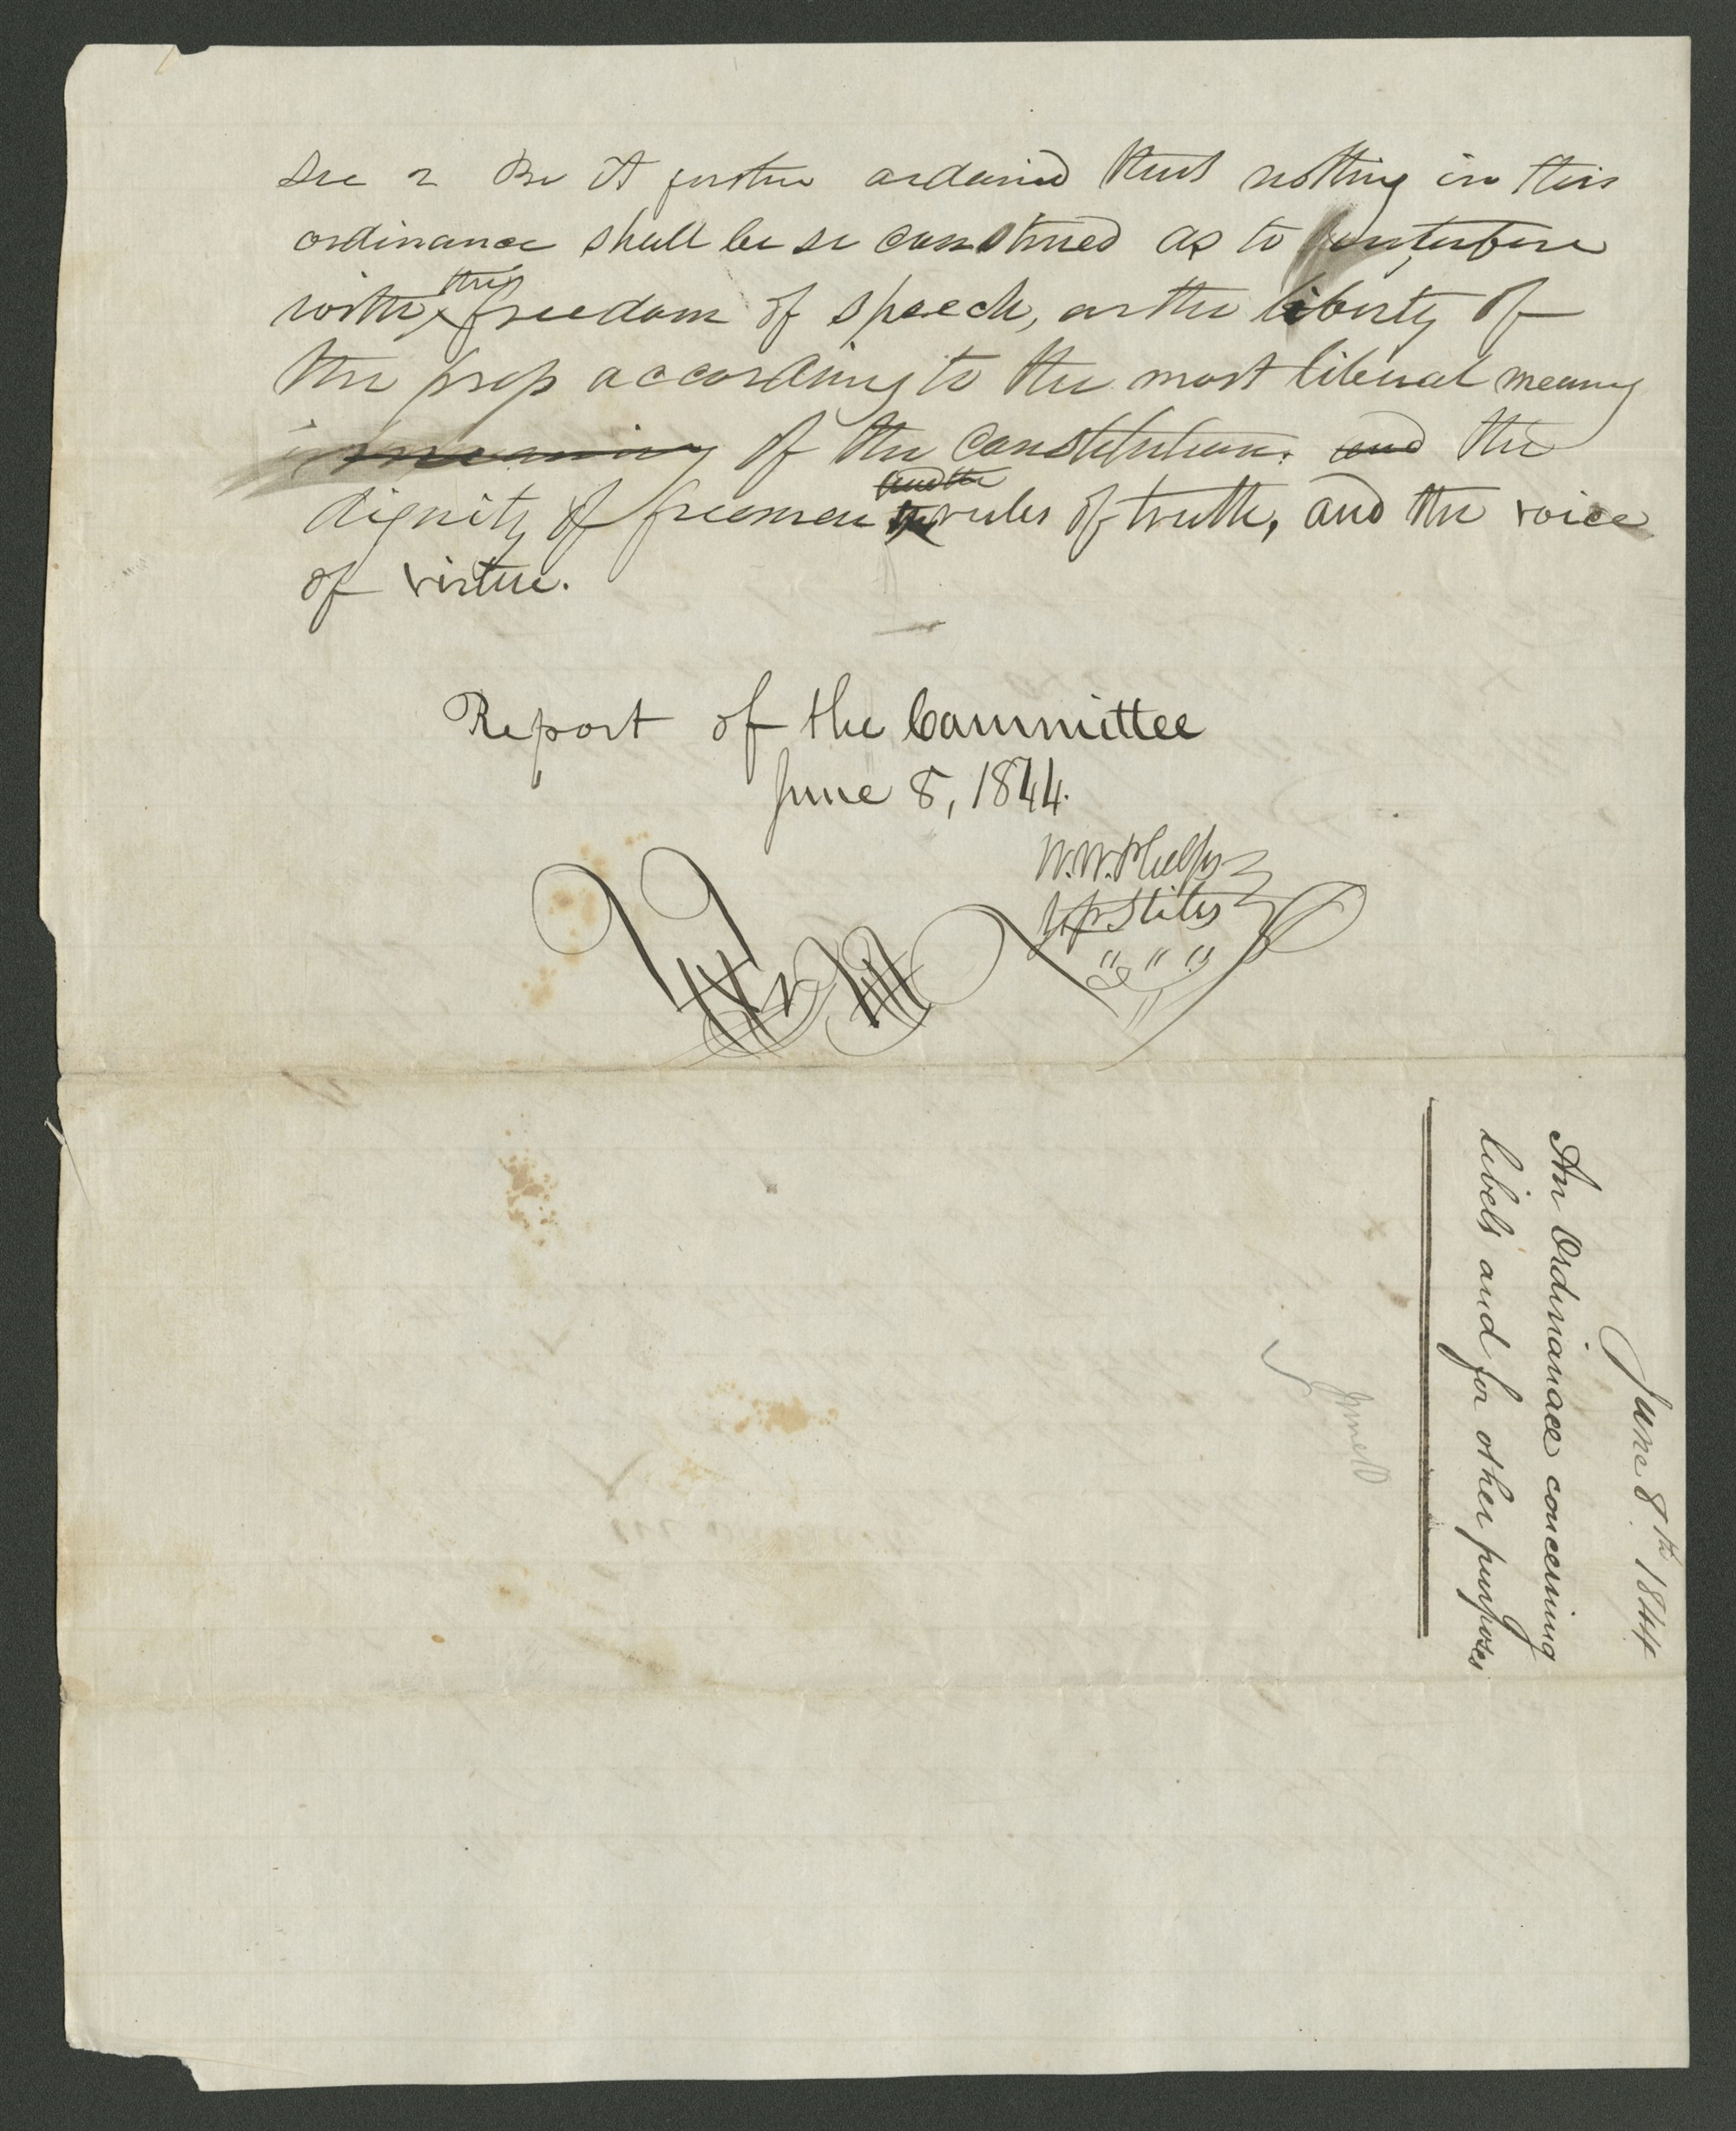 Sec 2 Be It further ordained that nothing in this
ordinance shall be so construed as to interfere
with the freedom of speech, or the liberty of
the press according to the most liberal meaning
meaning of the constitution. and the
dignity of freemen and the rules of truth, and the voice
of virtue.
Report of the Committee
June 8, 1844.
W.W. Phelps
G.P. Stiles
" " "
June 8th 1844
An Ordinance concerning
libels and for other purposes